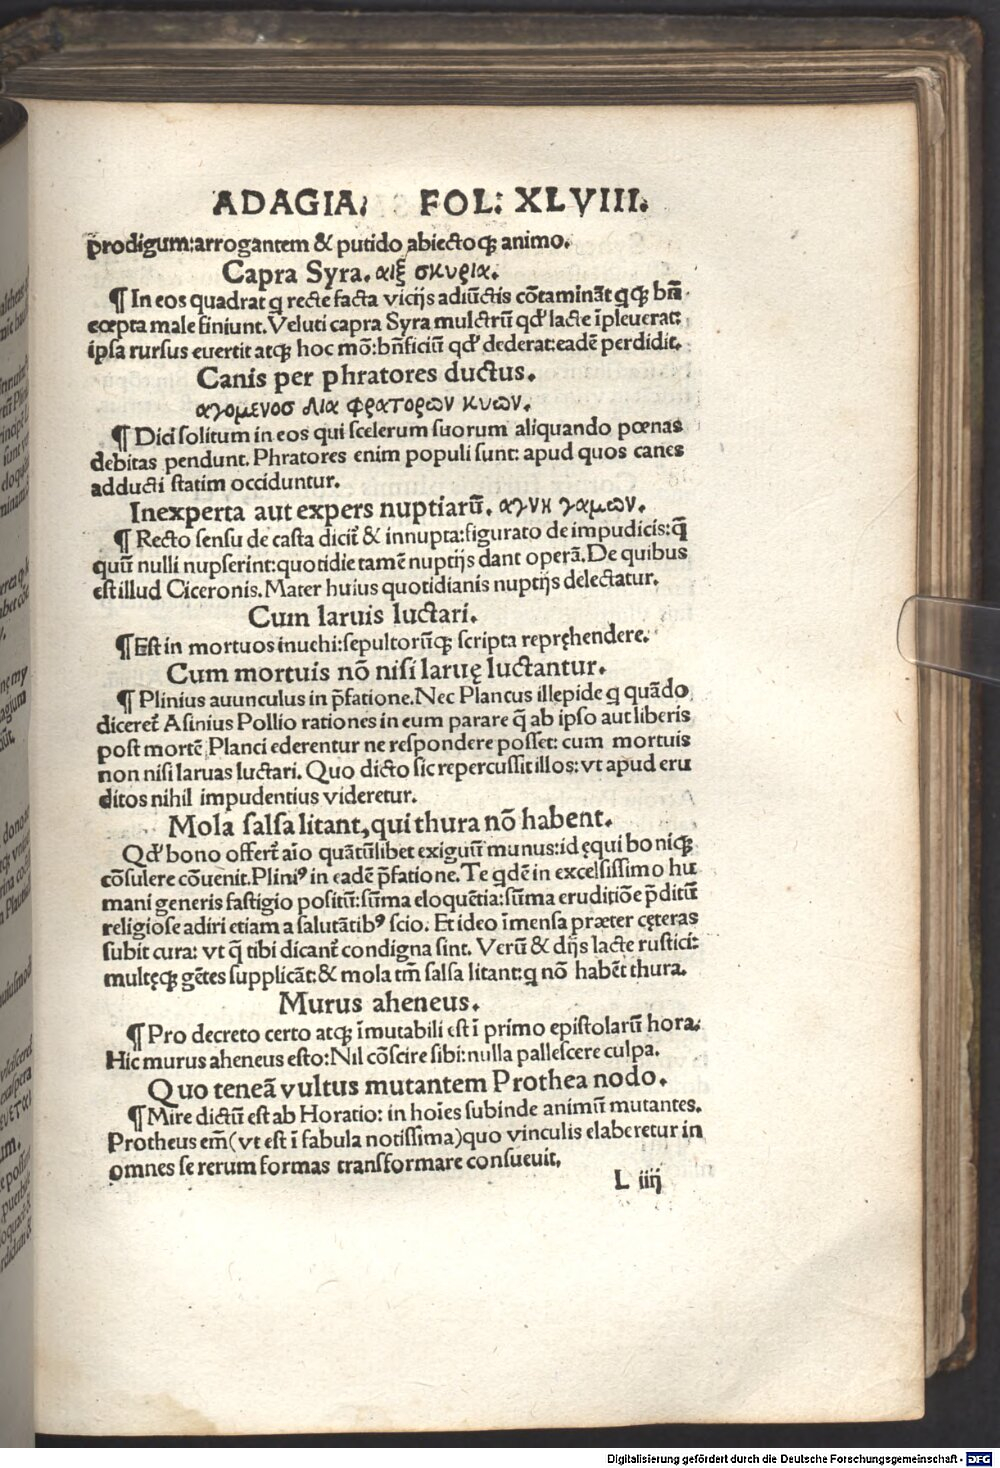 ADAGIA. FOL: XLVIII.
prodigum:arrogantem & putido abiectoqꝫ animo.
Capra Syra. αιξ σκυρια.
¶ In eos quadrat q̄ recte facta vicijs adiūctis cōtamināt qꝗꝫ bn̄
ecepta male finiunt. Veluti capra Syra mulctrū qd' lacte īpleuerat:
ipsa rursus euertit atqꝫ hoc mō:bn̄ficiū qd' dederat:eadē perdidit.
Canis per phratores ductus.
αγομενοσ δια φρατορων κυων.
¶ Dici solitum in eos qui scelerum suorum aliquando pœnas
debitas pendunt. Phratores enim populi sunt: apud quos canes
adducti statim occiduntur.
Inexperta aut expers nuptiarū. αγνη γαμων.
¶ Recto sensu de casta dicit̄ & innupta:figurato de impudicis:q̄
quū nulli nupserint:quotidie tamē nuptijs dant operā. De quibus
est illud Ciceronis. Mater huius quotidianis nuptijs delectatur.
Cum laruis luctari.
¶ Est in mortuos inuehi:sepultorūqꝫ scripta repręhendere.
Cum mortuis nō nisi laruę luctantur.
¶ Plinius auunculus in p̄fatione. Nec Plancus illepide q quādo
diceret̄ Asinius Pollio rationes in eum parare q̄ ab ipso aut liberis
post mortē Planci ederentur ne respondere posset: cum mortuis
non nisi laruas luctari. Quo dicto sic repercussit illos: vt apud eru
ditos nihil impudentius videretur.
Mola salsa litant, qui thura nō habent.
Qd' bono offert̄ aīo quātūlibet exiguū munus:id ęqui boniqꝫ
cōsulere cōuenit. Pliniꝰ in eadē p̄fatione. Te qdē in excelsissimo hu
mani generis fastigio positū:sūma eloquētia:sūma eruditiōe p̄ditū
religiose adiri etiam a salutātibꝰ scio. Et ideo īmensa præter cęteras
subit cura: vt q̄ tibi dicant̄ condigna sint. Verū & dijs lacte rustici:
multęqꝫ gētes supplicāt:& mola tm̄ salsa litant:q nō habēt thura.
Murus aheneus.
¶ Pro decreto certo atqꝫ īmutabili est ī primo epistolarū hora.
Hic murus aheneus esto: Nil cōscire sibi:nulla pallescere culpa.
Quo teneā vultus mutantem Prothea nodo.
¶ Mire dictū est ab Horatio: in hoīes subinde animū mutantes.
Protheus em̄(vt est ī fabula notissima)quo vinculis elaberetur in
omnes se rerum formas transformare consueuit.
L iiij
Digitalisierung gefördert durch die Deutsche Forschungsgemeinschaft - DFG